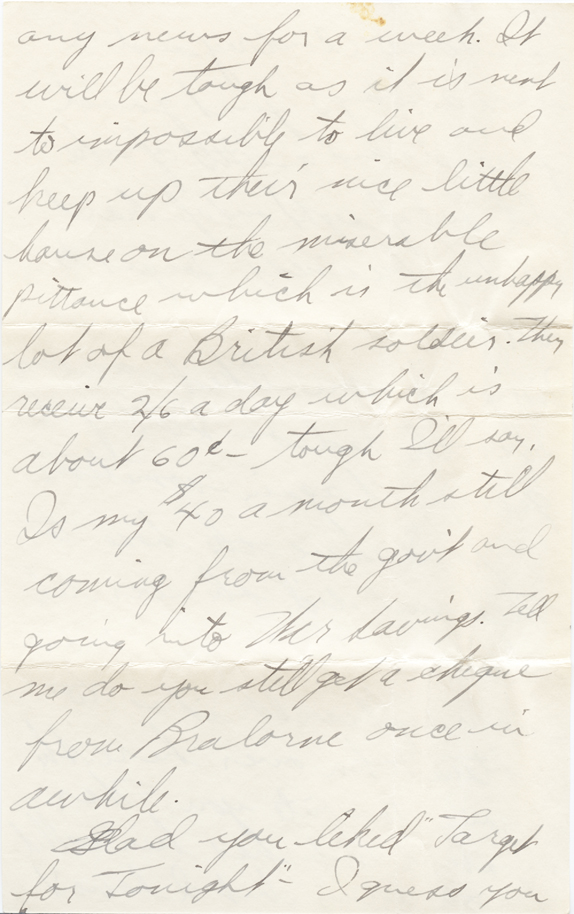 any news for a week. It
will be tough as it is next
to impossible to live and
keep up their nice little
house on the miserable
pittance which is the unhappy
lot of a British soldier. They
receive 2/6 a day which is
about 60¢ - tough I'll say.
Is my $40 a month still
coming from the gov't and
going into Savings. Tell
me do you still get a cheque
from Bralorne once in
awhile.
Glad you liked "Target
for Tonight" - I guess you